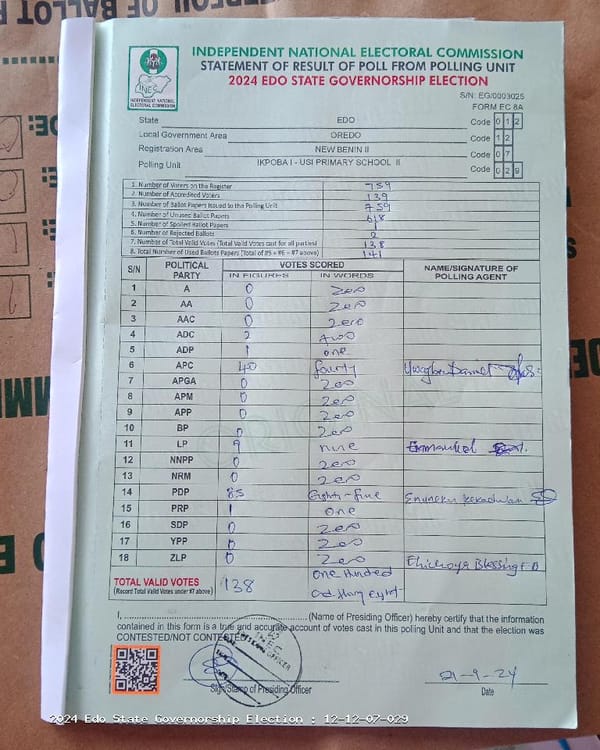 TERFOIL OF BALLOT
INEC
INDEPENDENT NATIONAL ELECTORAL COMMISSION
INDEPENDENT NATIONAL ELECTORAL COMMISSION
STATEMENT OF RESULT OF POLL FROM POLLING UNIT
2024 EDO STATE GOVERNORSHIP ELECTION
S/N: EG/0003025
FORM EC 8A
State EDO Code 0 1 2
Local Government Area OREDO Code 1 2
Registration Area NEW BENIN II Code 0 7
Polling Unit IKPOBA I - USI PRIMARY SCHOOL II Code 0 2 9
1. Number of Voters on the Register 759
2. Number of Accredited Voters 139
3. Number of Ballot Papers Issued to the Polling Unit 759
4. Number of Unused Ballot Papers 618
5. Number of Spoiled Ballot Papers 1
6. Number of Rejected Ballots 2
7. Number of Total Valid Votes (Total Valid Votes cast for all parties) 138
8. Total Number of Used Ballots Papers (Total of #5 + #6 + #7 above) 141
S/N POLITICAL PARTY VOTES SCORED NAME/SIGNATURE OF POLLING AGENT
IN FIGURES IN WORDS
1 A 0 Zero
2 AA 0 Zero
3 AAC 0 Zero
4 ADC 2 Two
5 ADP 1 one
6 APC 40 fourty Daniel
7 APGA 0 Zero
8 APM 0 Zero
9 APP 0 Zero
10 BP 0 Zero
11 LP 9 nine Emmanuel
12 NNPP 0 Zero
13 NRM 0 Zero
14 PDP 85 Eighty-five
15 PRP 1 one
16 SDP 0 Zero
17 YPP 0 Zero
18 ZLP 0 Zero Blessing
TOTAL VALID VOTES 138 One Hunded
(Record Total Valid Votes under #7 above) and thirty eight
I, (Name of Presiding Officer) hereby certify that the information
contained in this form is a true and accurate account of votes cast in this polling Unit and that the election was
CONTESTED/NOT CONTESTED
INEC
Sign/Stamp of Presiding Officer
21-9-24
Date
2024 Edo State Governorship Election : 12-12-07-029